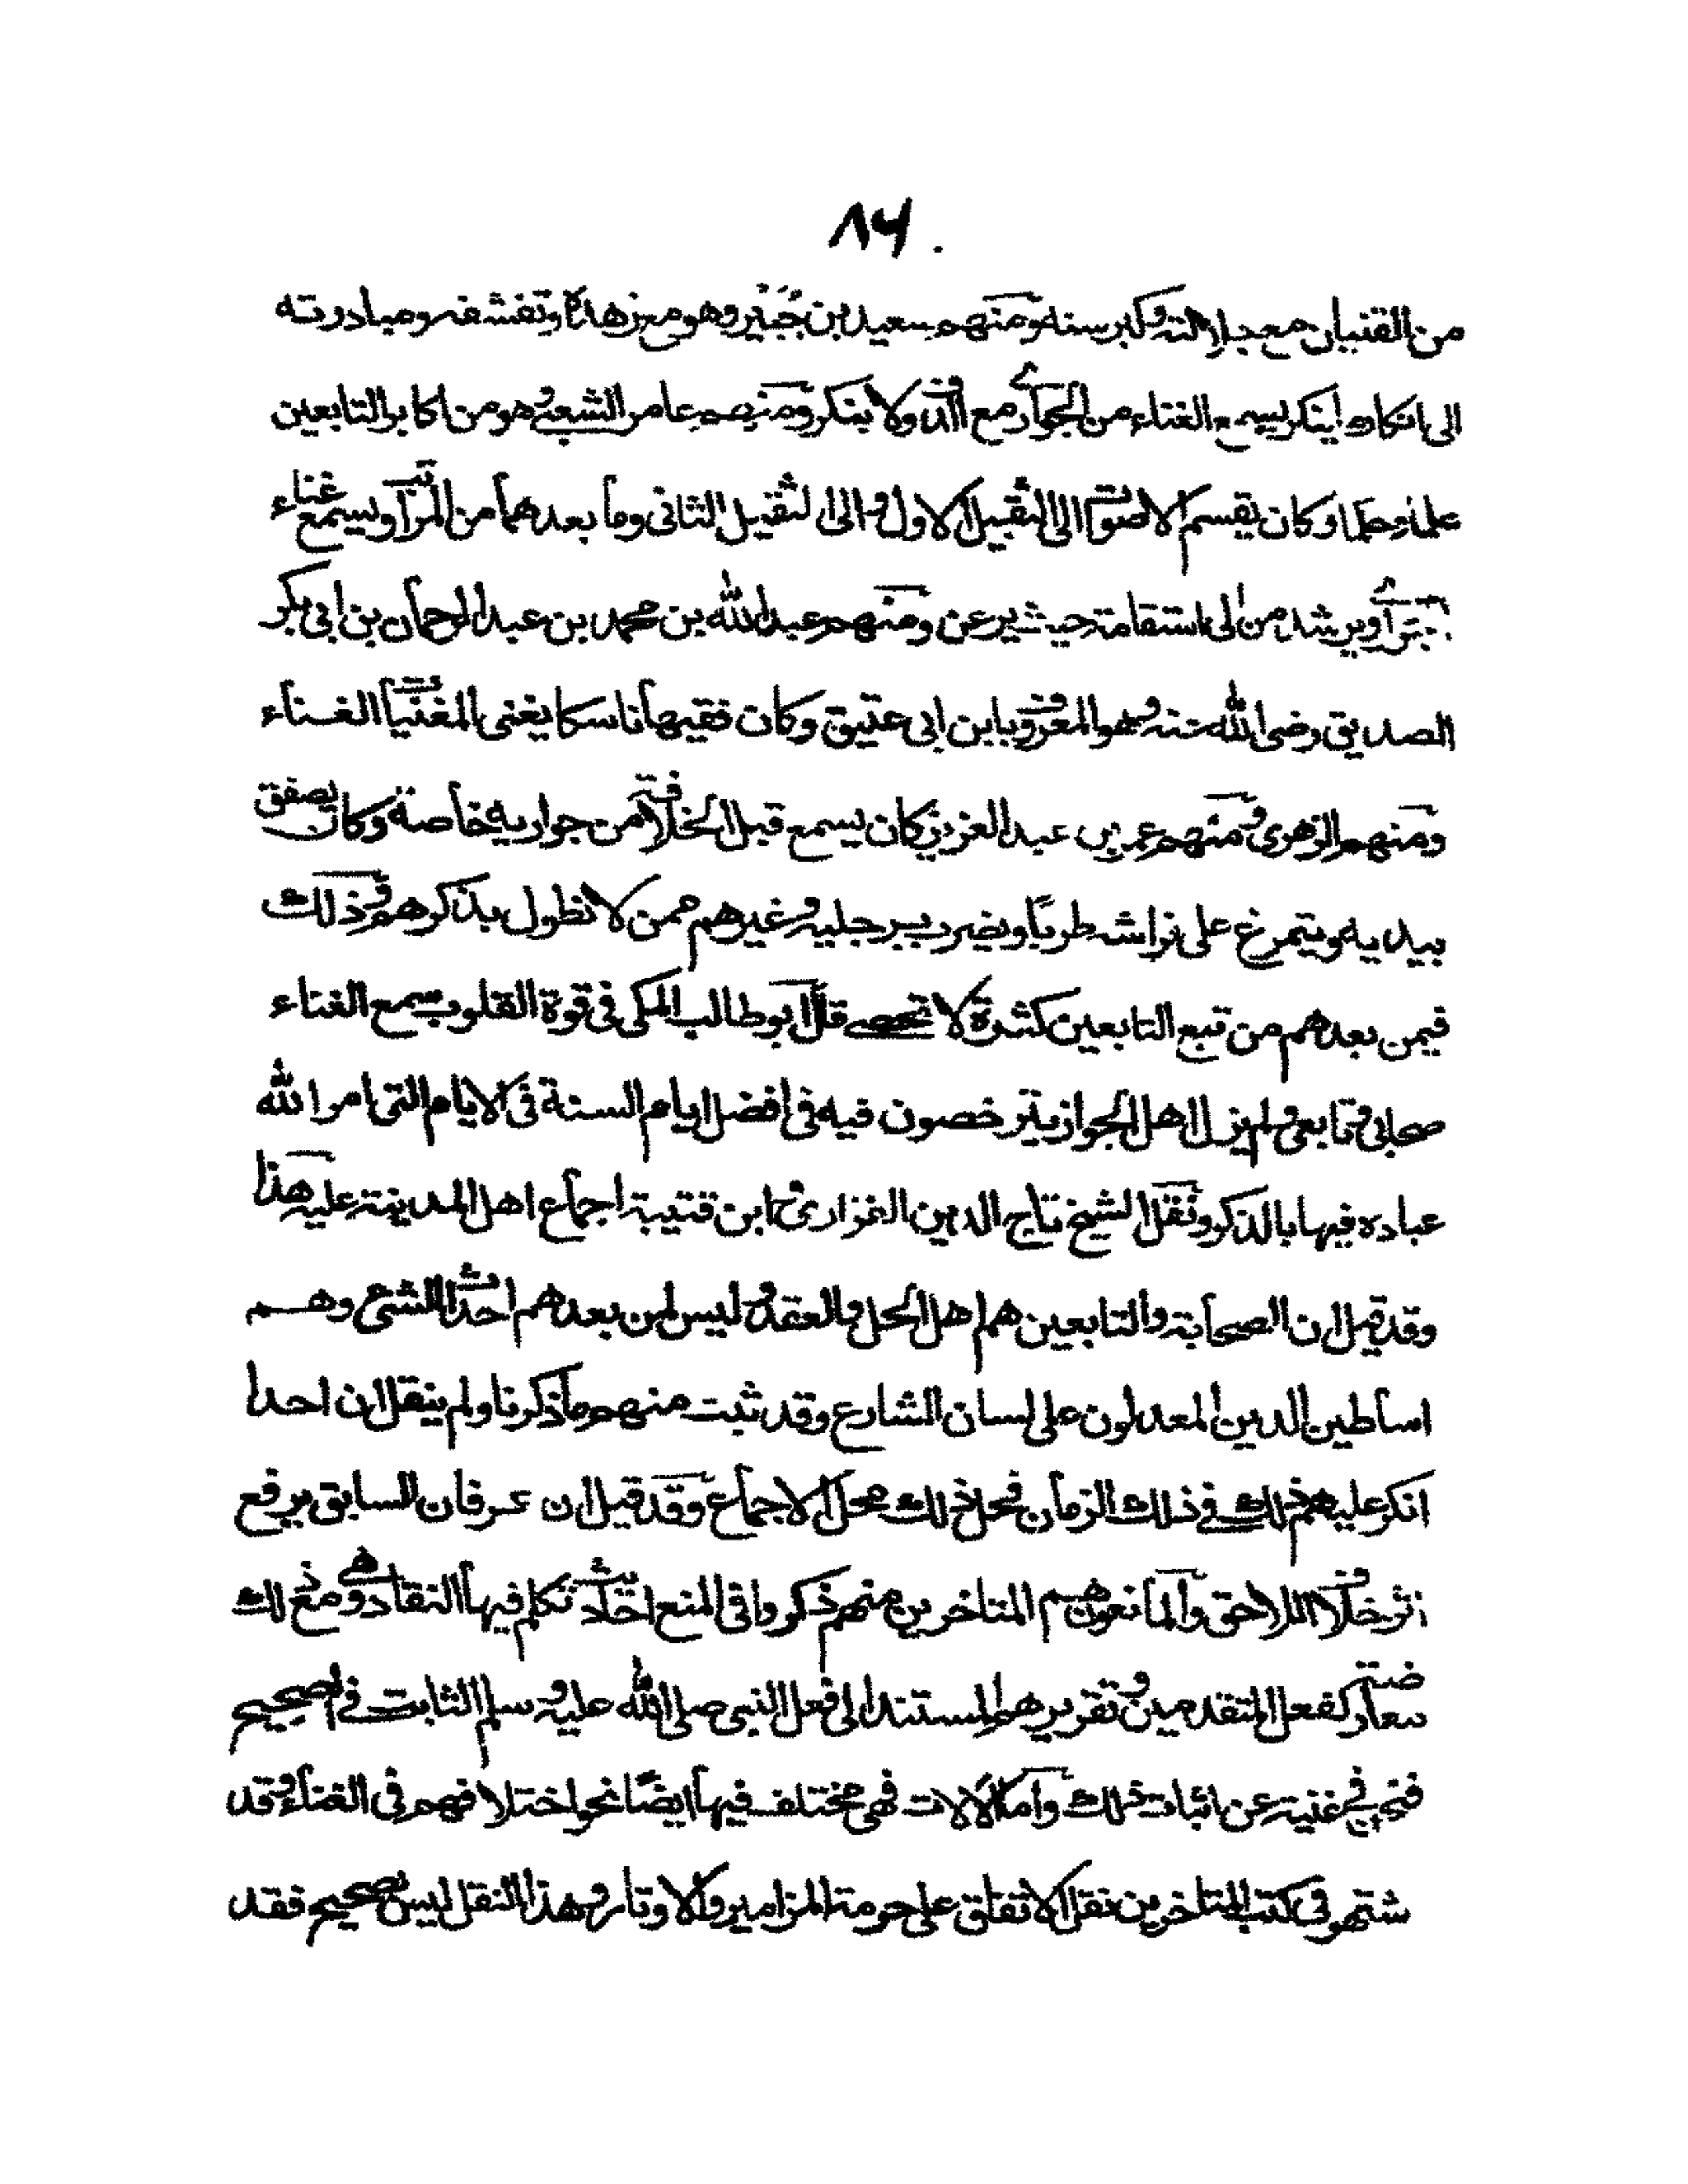 ٨٤
من القنيان مع جلالته وكبر سنه ومنهم سعيد بن جُبَيْر وهو مع زهده وتقشفه ومبادرته
الى انكار ما ينكر يسمع الغناء من الجوارى مع الدف ولا ينكر ومنهم عامر الشعبي وهو من اكابر التابعين
علما وعملا وكان يقسم الاصوات الى الثقيل الاول والى الثقيل الثانى وما بعدهما من المراتب ويسمع غناء
ويرشد من الى استقامة حيث ومنهم عبد الله بن محمد بن عبد الرحمان بن ابى بكر
الصديق رضى الله عنه وهو المعروف بابن ابى عتيق وكان فقيها ناسكا يغنى المغنيات الغناء
ومنهم الزهرى ومنهم عمر بن عبد العزيز كان يسمع قبل الخلافة من جواريه خاصة وكان يصفق
بيديه ويتمرغ على فراشه طربًا ويضرب برجليه وغيرهم ممن لا نطول بذكرهم وذلك
فيمن بعدهم من تبع التابعين كثرة لا تحصى قال ابو طالب المكى فى قوة القلوب سمع الغناء
صحابى وتابعى ولم يزل اهل الجواز يترخصون فيه فى افضل ايام السنة فى الايام التى امر الله
عباده فيها بالذكر ونقل الشيخ تاج الدين الفزارى وابن قتيبة اجماع اهل المدينة عليه هذا
وقد قيل ان الصحابة والتابعين هم اهل الحل والعقد وليس لمن بعدهم احداث الشرع وهم
اساطين الدين المعدلون على لسان الشارع وقد ثبت منهم ما ذكرنا ولم ينقل ان احدا
انكر عليهم ذلك فى ذلك الزمان فحل ذلك محل الاجماع وقد قيل ان عرفان السابق يرفع
اثر خلاف اللاحق والمانعون هم المتاخرين منهم ذكروا فى المنع احاديث تكلم فيها النقاد وهى مع ذلك
معارضة كفعل المتقدمين وتقريرهم المستند الى فعل النبى صلى الله عليه وسلم الثابت فى الصحيح
غنية عن اثبات ذلك واما الالات فهى مختلف فيها ايضًا نحو اختلافهم فى الغناء وقد
شتهر فى كتب المتاخرين نقل الاتفاق على حرمة المزامير والاوتار وهذا النقل ليس بصحيح فقد